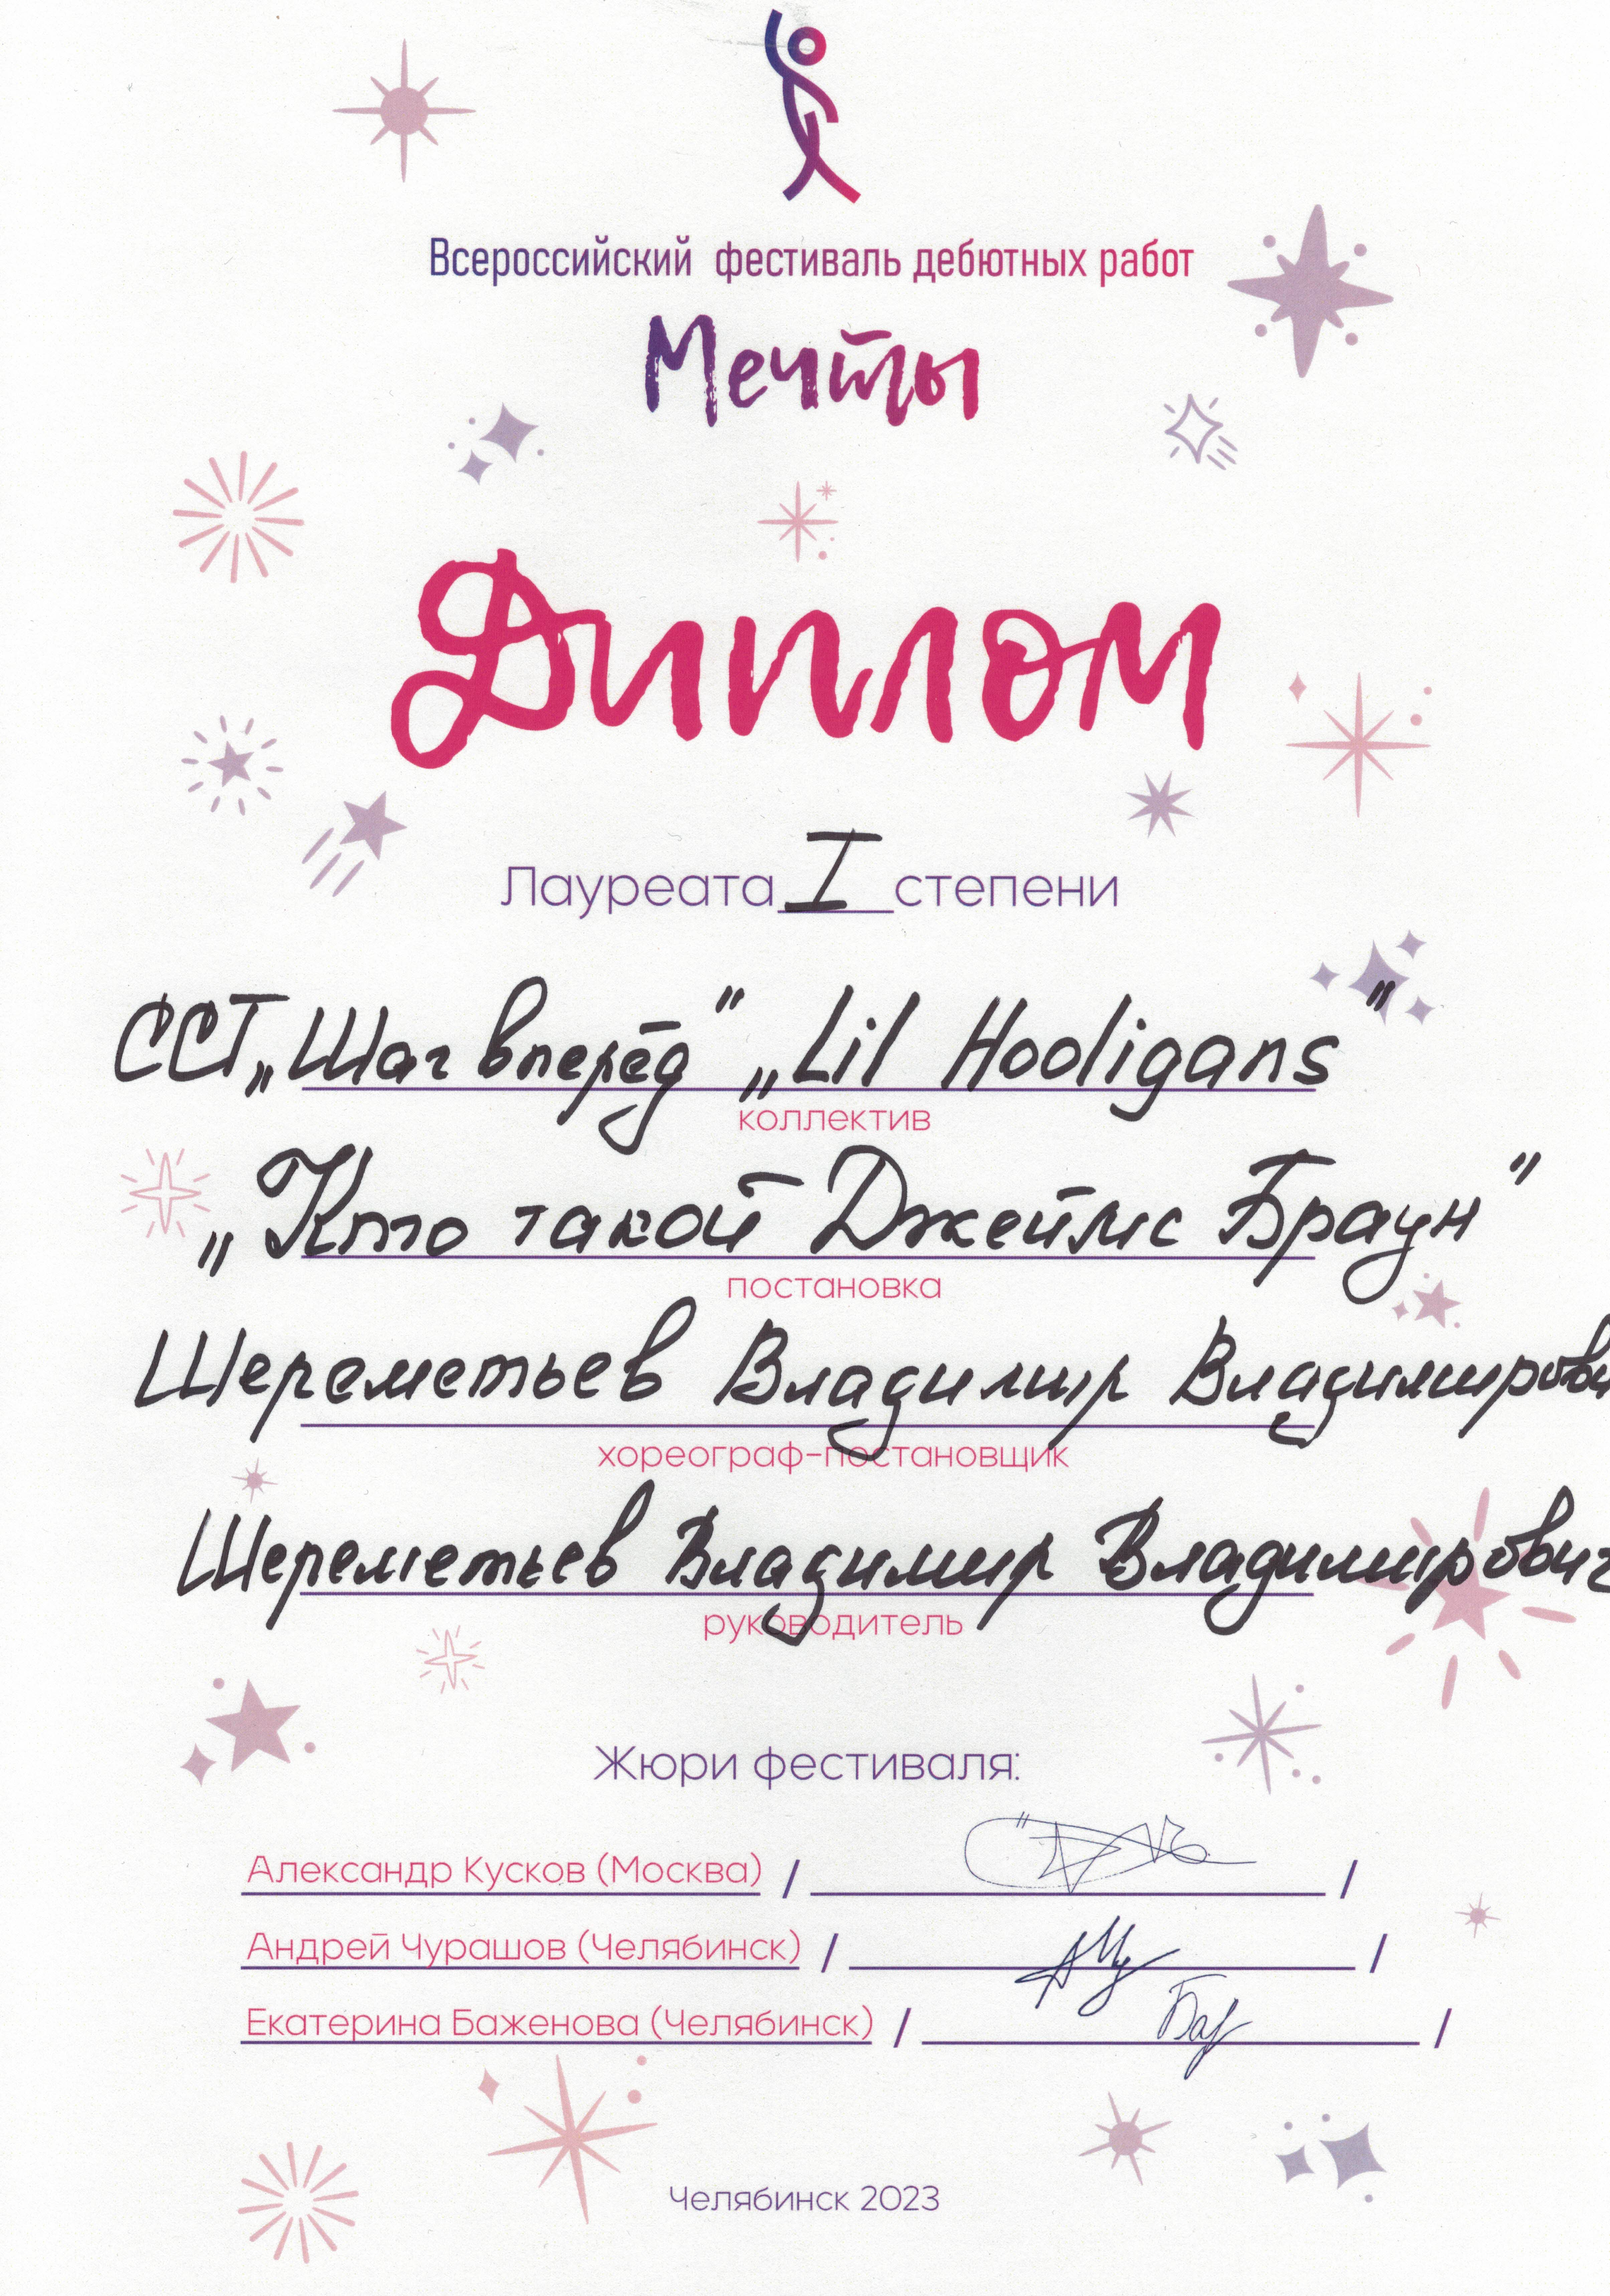 Всероссийский фестиваль дебютных работ
Мечты
Диплом
Лауреата I степени
ССТ „Шаг вперёд" „Lil Hooligans"
коллектив
„Кто такой Джеймс Браун"
постановка
Шереметьев Владимир Владимирови
хореограф-постановщик
Шереметьев Владимир Владимирович
руководитель
Жюри фестиваля:
Александр Кусков (Москва) / /
Андрей Чурашов (Челябинск) / /
Екатерина Баженова (Челябинск) / /
Челябинск 2023